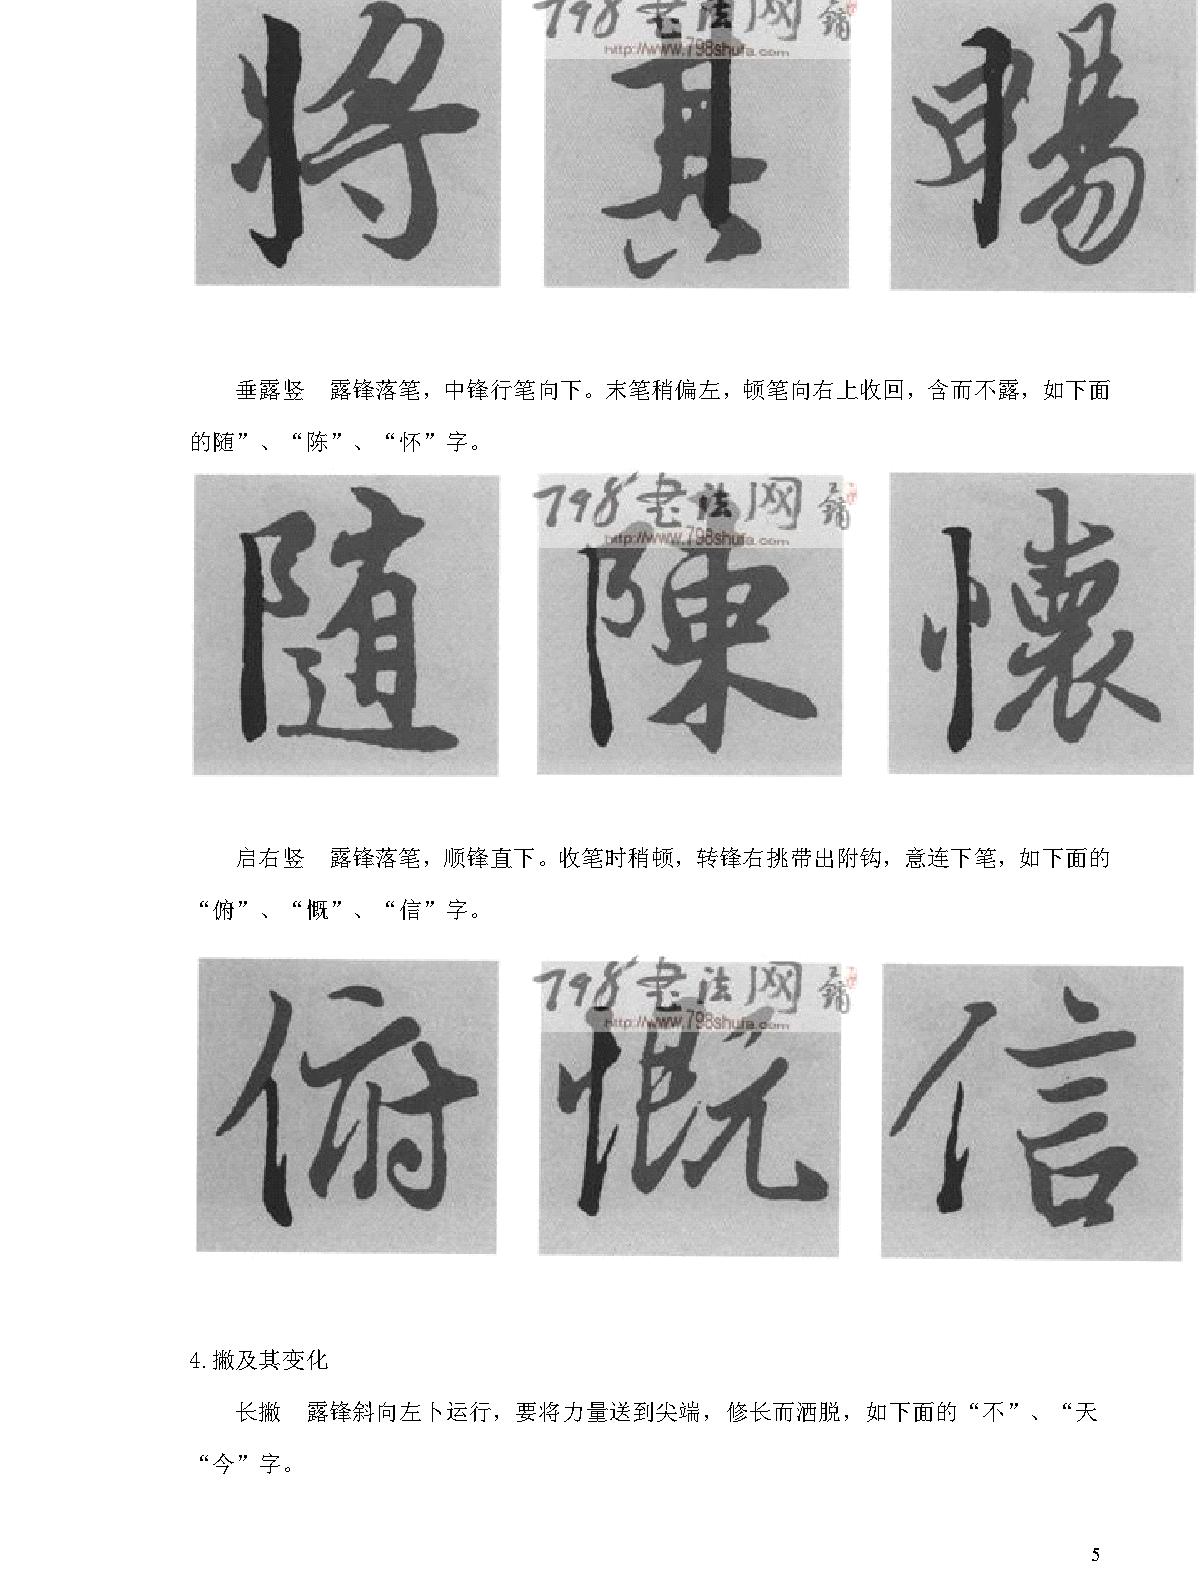 798书法网
http://www.798shufa.com
将 其 畅
垂露竖 露锋落笔，中锋行笔向下。末笔稍偏左，顿笔向右上收回，含而不露，如下面
的随”、“陈”、“怀”字。
798书法网
http://www.798shufa.com
随 陳 懷
启右竖 露锋落笔，顺锋直下。收笔时稍顿，转锋右挑带出附钩，意连下笔，如下面的
“俯”、“慨”、“信”字。
798书法网
http://www.798shufa.com
俯 慨 信
4.撇及其变化
长撇 露锋斜向左卜运行，要将力量送到尖端，修长而洒脱，如下面的“不”、“天
“今”字。
5